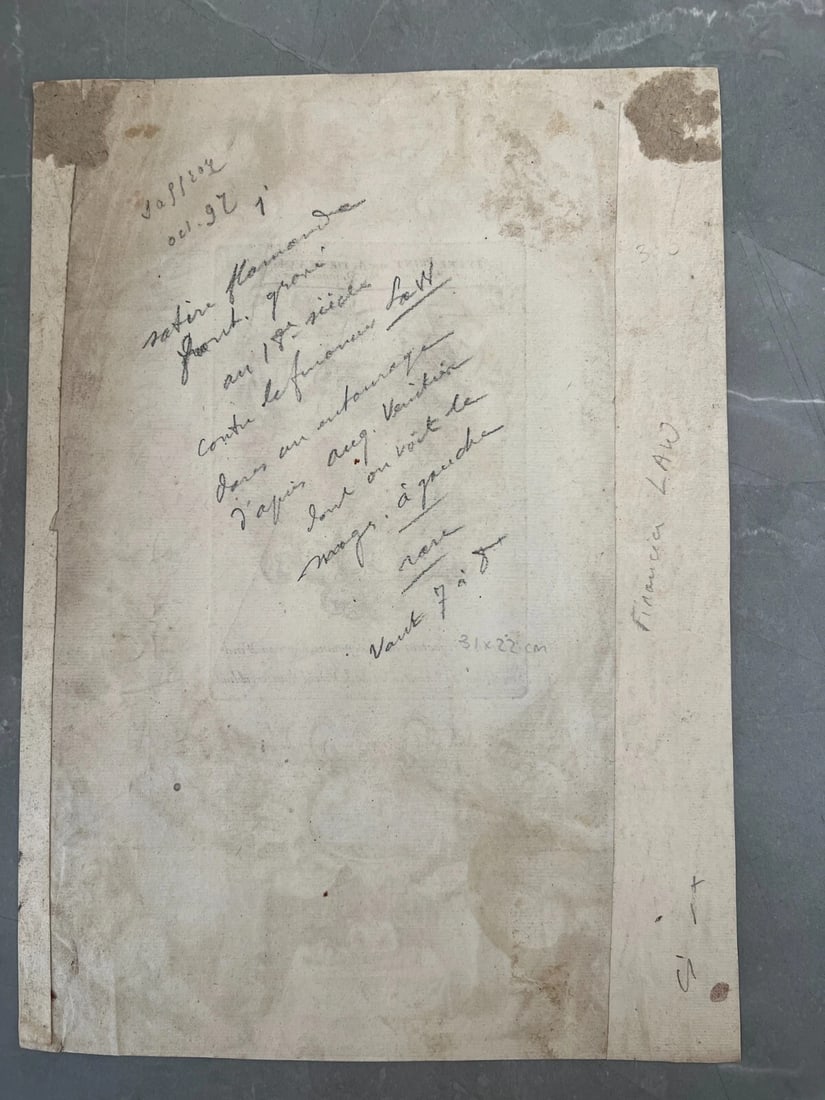 Saffroy
oct. 92
satire flamande
front. gravé
au 18e siècle
contre le financier LAW
dans un entourage
d'après Aug. Venitien
dont on voit le
monogr. à gauche
rare
Vaut 7 à 8
31 x 22 cm
Financier LAW